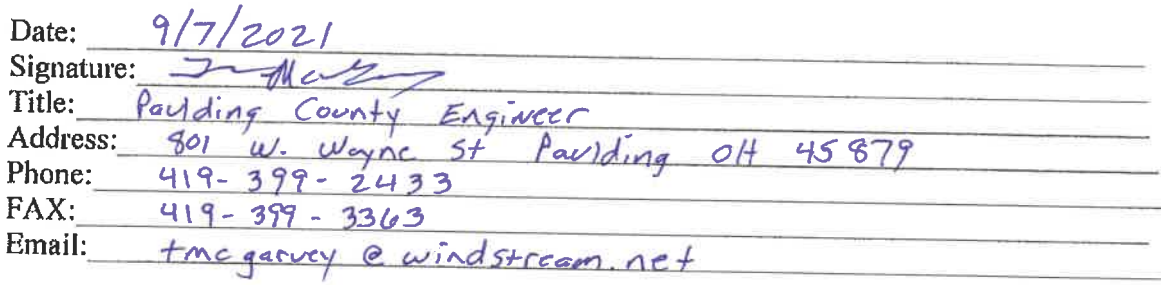 Date: 9/7/2021
Signature:
Title: Paulding County Engineer
Address: 801 W. Wayne St Paulding OH 45879
Phone: 419-399-2433
FAX: 419-399-3363
Email: tmcgarvey@windstream.net